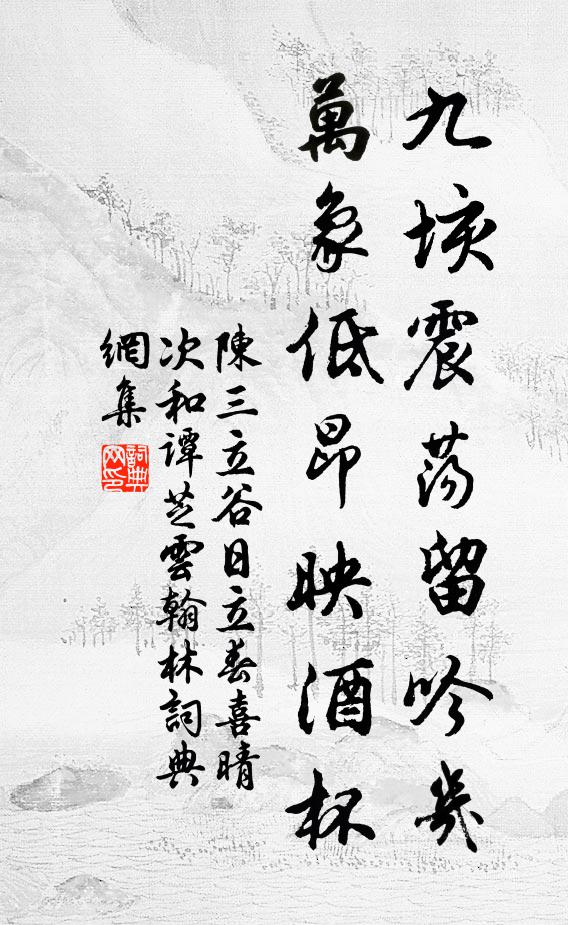 九垓震荡留吟几
萬象低昂映酒杯
陳三立谷日立春喜晴
次和谭芝雲翰林詞典
網集
詞典网印